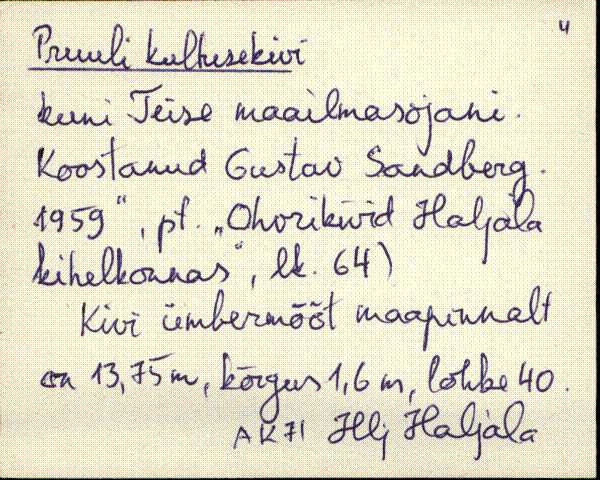 4
Pruuli kultusekivi
kuni Teise maailmasõjani.
Koostanud Gustav Sandberg.
1959", pt. „Ohvrikivid Haljala
kihelkonnas", lk. 64)
Kivi ümbermõõt maapinnalt
on 13,75 m, kõrgus 1,6 m, lohke 40.
AK71 Hlj Haljala